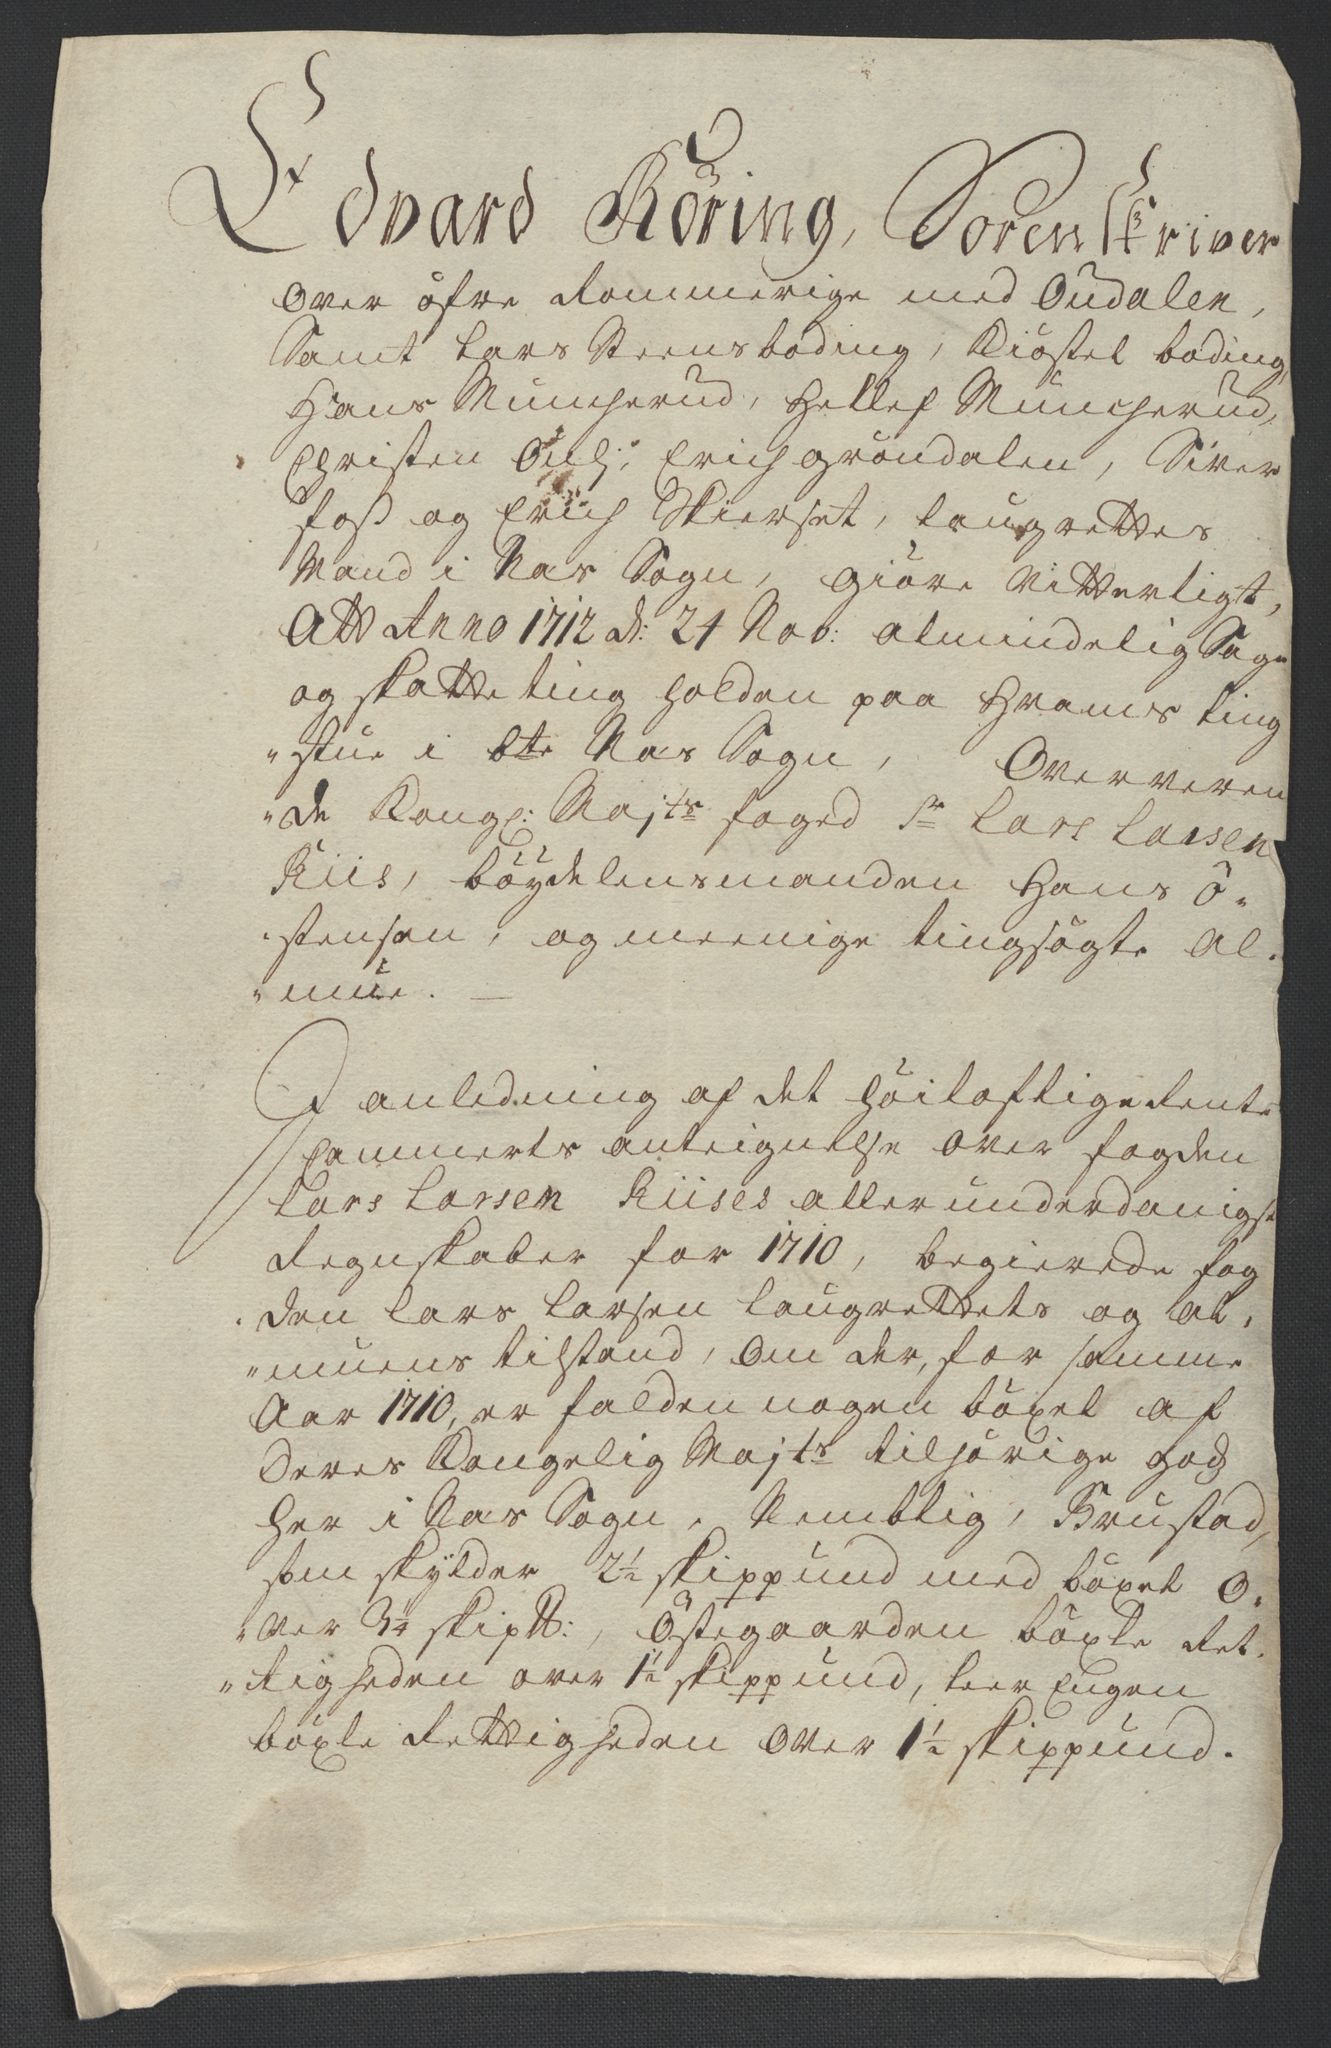 Edvard Röring, Sorenskriver
Over öfre Rommerige med Oudalen,
Samt Lars Steensboding, Kiöstel boding,
Hans Müncherud, Hellef Müncherud,
Christen Erich gröndalen, Siver
foss og Erich Skierset, Laugrettes
Mænd i Næs Sogn, giöre Vitterligt,
Att Anno 1712 d: 24 Nov: almindelig Sage
og skatte ting holden paa Hvams ting
"stue i bte Næs Sogn, Oververen
"de Kongl: Majts foged Sr Lars Larsen
Riis, böÿdelensmanden Hans Ö-
"stensen, og meenige tingsögte Al-
"mue.
I anledning af det höiloflige Rente
Cammerts anteignelse over fogden
Lars Larsen Riises allerunderdanigste
Regnskaber for 1710, begierede fog
"den Lars Larsen Laugrettets og Al-
"muens tilstand, Om der, for samme
Aar 1710, er falden nogen böxel af
Deres Kongelig Majts tilhörige gods
her i Næs Sogn, Nemblig, Brustad,
som skÿlder 2½ skippund med böxel O-
"ver 3¼ skip℔:, Östegaarden böxle Ret-
"tigheden over 1½ skippund, Leer Engen
böxle Rettigheden Over 1½ skippund.